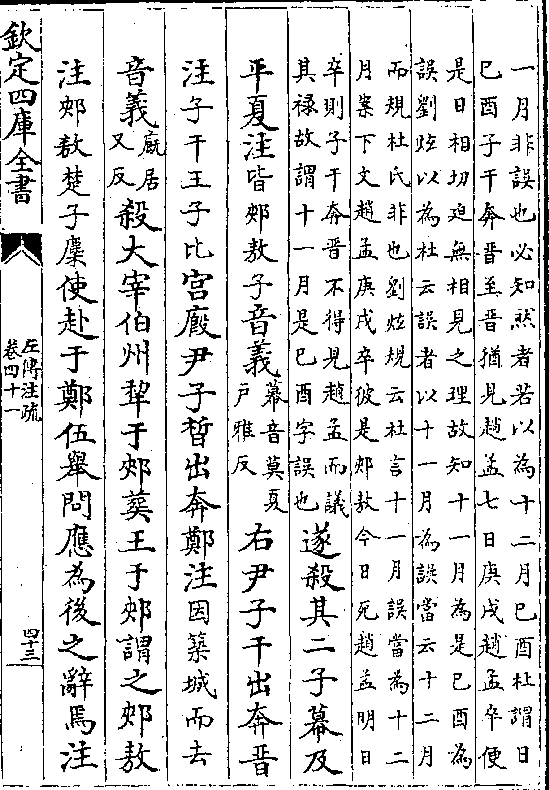 一月非誤也必知然者若以為十二月己酉杜謂日
己酉子干奔晉至晉猶見趙孟七日庚戌趙孟卒便
是日相切迫無相見之理故知十一月為是己酉為
誤劉炫以為杜云誤者以十一月為誤當云十二月
而規杜氏非也劉炫規云杜言十一月誤當為十二
月案下文趙孟庚戌卒彼是郟敖今日死趙孟明日
卒則子干奔晉不得見趙孟而議
其禄故謂十一月是己酉字誤也
遂殺其二子幕及
平夏注皆郟敖子音義
幕音莫夏
戸雅反
右尹子干出奔晉
注子干王子比宮廏尹子晳出奔鄭注因築城而去
音義
廏居
又反
殺大宰伯州犂于郟葬王于郟謂之郟敖
注郟敖楚子麇使赴于鄭伍舉問應為後之辭焉注
欽定四庫全書
左傳注疏
卷四十一
四十三